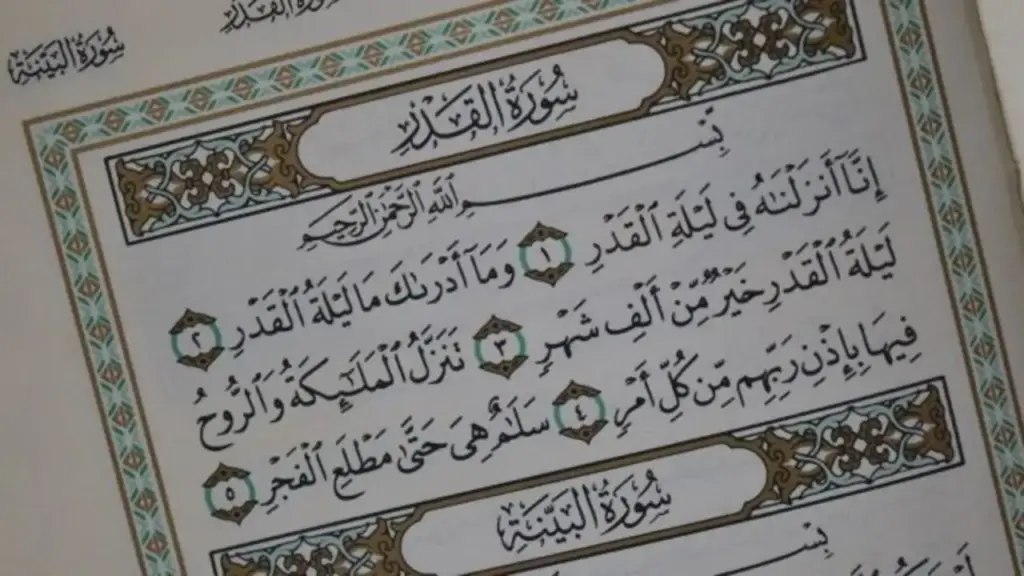 سُورَةُ القَدْرِ
سُورَةُ البَيِّنَةِ
سُورَةُ القَدْرِ
بِسْمِ ٱللَّهِ ٱلرَّحْمَٰنِ ٱلرَّحِيمِ
إِنَّآ أَنزَلْنَٰهُ فِى لَيْلَةِ ٱلْقَدْرِ ١ وَمَآ أَدْرَىٰكَ مَا لَيْلَةُ ٱلْقَدْرِ ٢
لَيْلَةُ ٱلْقَدْرِ خَيْرٌ مِّنْ أَلْفِ شَهْرٍ ٣ تَنَزَّلُ ٱلْمَلَٰٓئِكَةُ وَٱلرُّوحُ
فِيهَا بِإِذْنِ رَبِّهِم مِّن كُلِّ أَمْرٍ ٤ سَلَٰمٌ هِىَ حَتَّىٰ مَطْلَعِ ٱلْفَجْرِ ٥
سُورَةُ البَيِّنَةِ
بِسْ